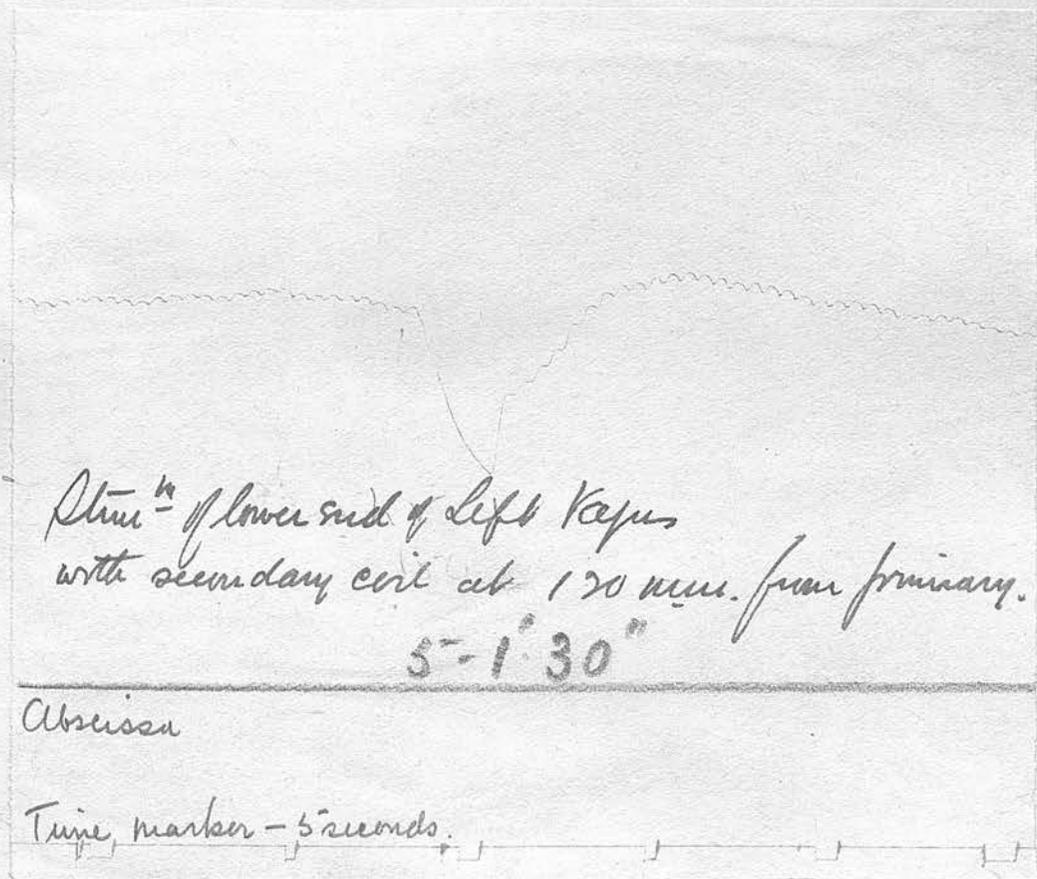 Stimⁿ of lower end of Left Vagus
with secondary coil at 120 mm. from primary.
5-1' 30"
Abscissa
Time marker – 5 seconds.